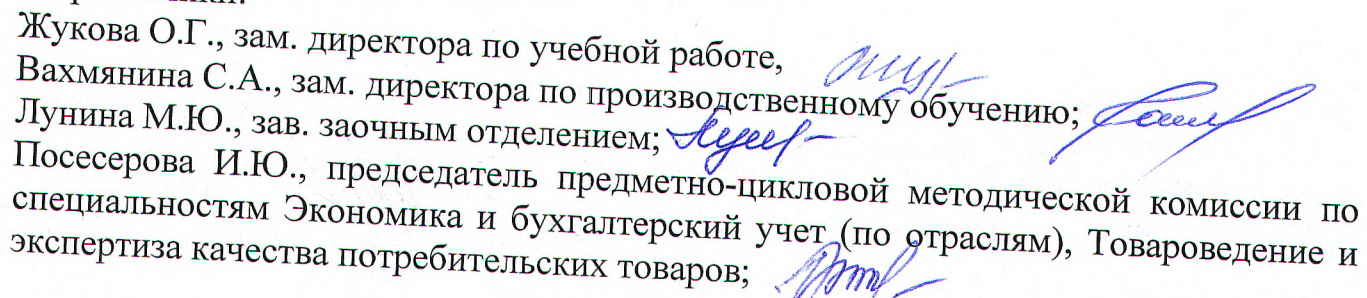 Жукова О.Г., зам. директора по учебной работе,
Вахмянина С.А., зам. директора по производственному обучению;
Лунина М.Ю., зав. заочным отделением;
Посесерова И.Ю., председатель предметно-цикловой методической комиссии по
специальностям Экономика и бухгалтерский учет (по отраслям), Товароведение и
экспертиза качества потребительских товаров;